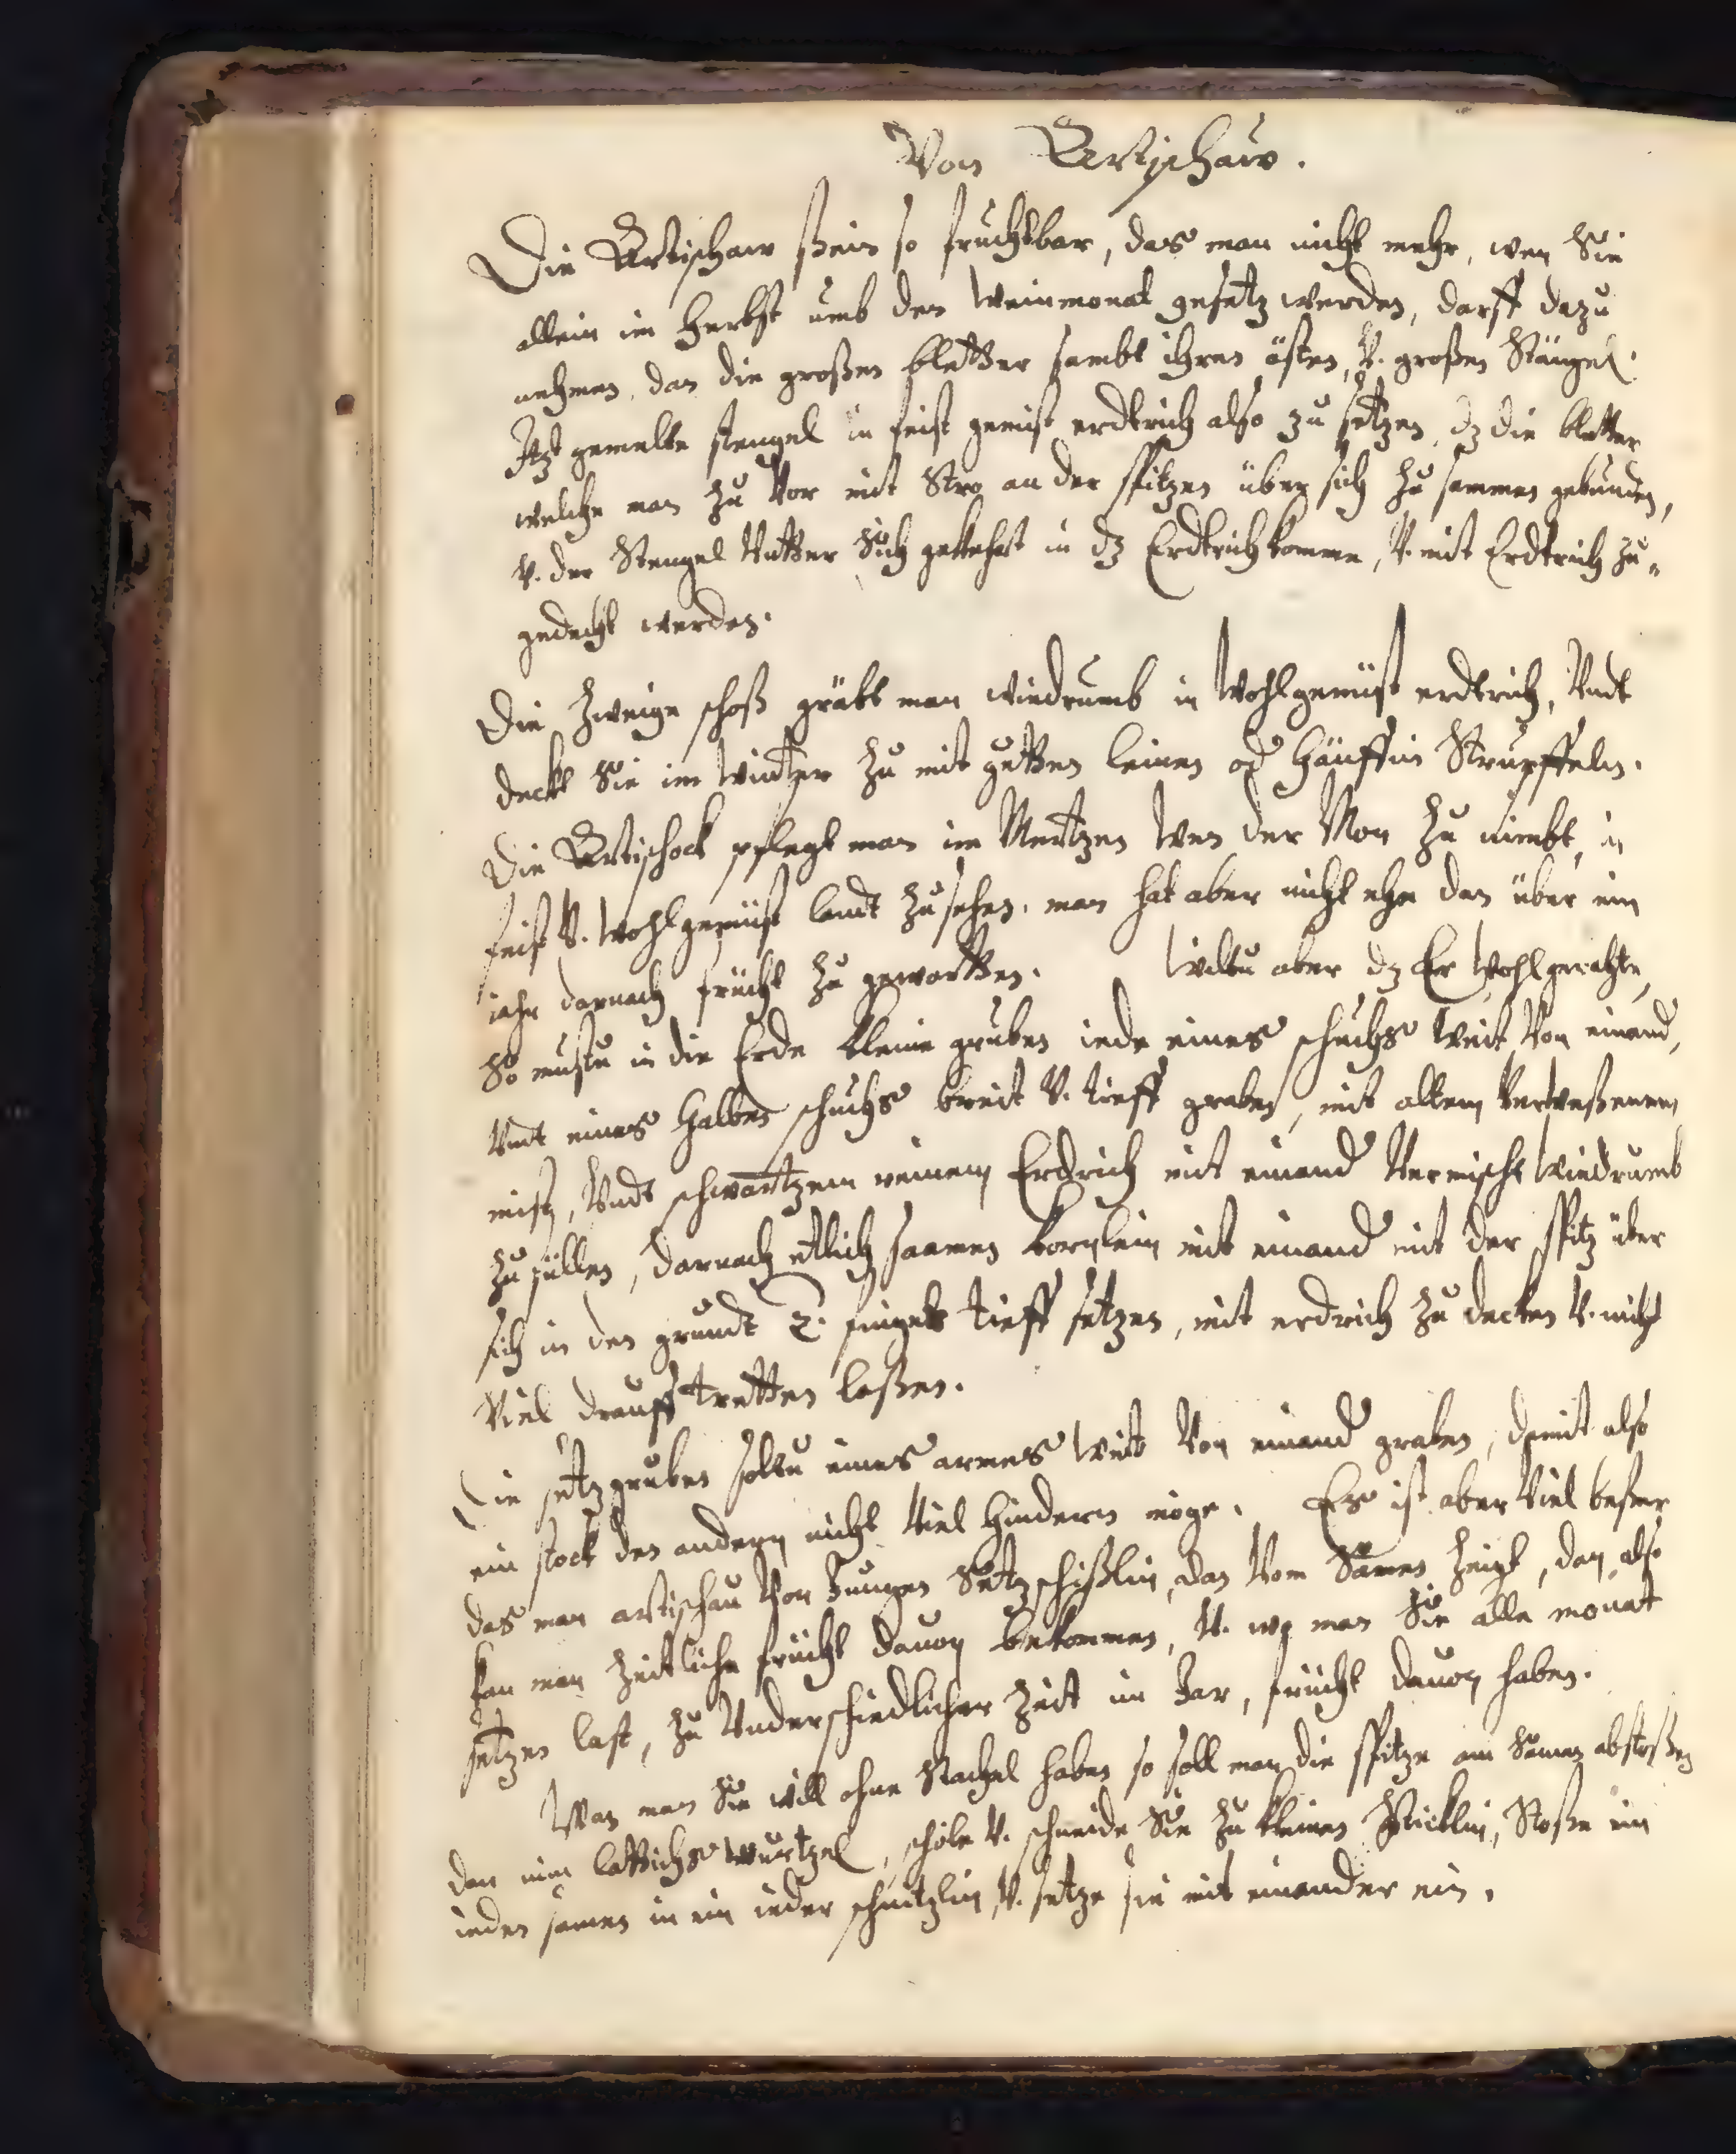 Von Artischaw.
Die Artischaw sein so fruchtbar, das man nicht mehr, wen Sie
allein im Herbst umb den Weinmonat gesetz werden, darff dazu
nehmen, dan die großen bletter sambt ihren ästen, V. großen Stängel.
Itzt gemelte stengel in feist gemist erdtrich also zu setzen, dz die bletter
welche man zu Vor mit Stro an der spitzen über sich zu sammen gebunden,
V. der Stengel Vntter Sich gekehrt in dz Erdtrich komme, V. mit Erdtrich zu-
gedeckt werden.
Die Zweige schoß gräbt man wiedrumb in Wohlgemist erdtrich, Vndt
deckt Sie im Wintter zu mit gutten leinen od Hänffin Strupffeln.
Die Artischock pflegt man im Mertzen Wen der Mon zu nimbt, in
feist V. Wohlgemist landt zusehen. man hat aber nicht ehe dan über ein
iahr darnach frücht zu gewartten. Wiltu aber dz Er Wohlgerahte,
So mustu in die Erde kleine gruben iede eines schuchs Weit Von einand,
Vndt eines Halben schuchs breit V. tieff graben, mit altem Verweßenem
mist, Vndt schwartzem reinem Erdrich mit einand Vermischt Wiedrumb
zu füllen, darnach etlich saamen kornlein mit einand mit der spitz über
sich in den grundt 2. fingers tieff setzen, mit erdrich zu decken V. nicht
Viel drauff tretten laßen.
Die setzgruben soltu eines armes Weit Von einand graben, damit also
ein stock den andern nicht Viel Hindern möge. Es ist aber Viel beßer
das man artischau Von Jungen Setzschißlin, dan Vom Samen Zeigt, dan also
kan man Zeitliche frücht dauon bekommen, V. wo man Sie alle monat
setzen last, zu Vnderschiedlicher Zeit im Jar, frücht dauon haben.
Wan man Sie will ohne Stachel haben so soll man die spitze am Samen abstoßen
dan nim lattichs Wurtzel, schöle V. schneide Sie zu kleinen Stücklin, Stoße ein
ieden samen in ein ieder schnitzlin, V. setze sie mit einander ein.